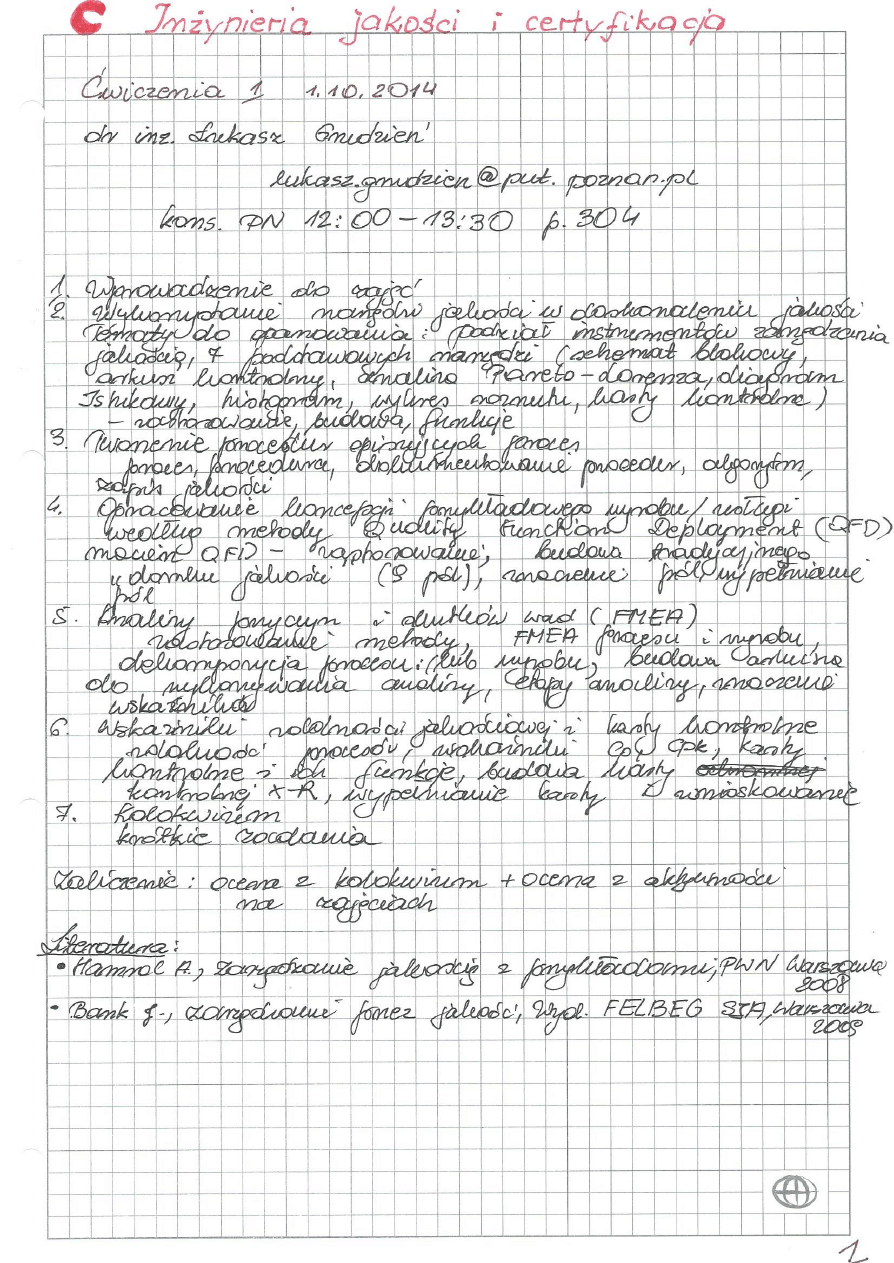 C Inżynieria jakości i certyfikacja
Ćwiczenia 1 1.10.2014
dr inż. Łukasz Grudzień
lukasz.grudzien@put.poznan.pl
kons. PN 12:00 – 13:30 p. 304
1. Wprowadzenie do zajęć
2. Wykorzystanie narzędzi jakości w doskonaleniu jakości
Tematy do opanowania: podział instrumentów zarządzania
jakością, 7 podstawowych narzędzi (schemat blokowy,
arkusz kontrolny, analiza Pareto – Lorenza, diagram
Ishikawy, histogram, wykres rozrzutu, karty kontrolne)
– zastosowanie, budowa, funkcje
3. Tworzenie procedur opisujących proces
proces, procedura, dokumentowanie procedur, algorytm,
zapis jakości
4. Opracowanie koncepcji przykładowego wyrobu/usługi
według metody Quality Function Deployment (QFD)
QFD – zastosowanie, budowa tradycyjnego
domku jakości (9 pól), znaczenie pól wypełnianie
pól
5. Analizy przyczyn i skutków wad (FMEA)
zastosowanie metody, FMEA procesu i wyrobu,
dekompozycja procesu i/lub wyrobu, budowa arkusza
do wykonywania analizy, etapy analizy, znaczenie
wskaźników
6. Wskaźniki zdolności jakościowej i karty kontrolne
zdolność procesów, wskaźniki Cp, Cpk, karty
kontrolne i ich funkcje, budowa karty
kontrolnej X-R, wypełnianie karty i wnioskowanie
7. Kolokwium
krótkie zadania
Zaliczenie: ocena z kolokwium + ocena z aktywności
na zajęciach
Literatura:
• Hamrol A., Zarządzanie jakością z przykładami, PWN Warszawa
2008
• Bank J., Zarządzanie przez jakość, Wyd. FELBERG SJA, Warszawa
2009
1